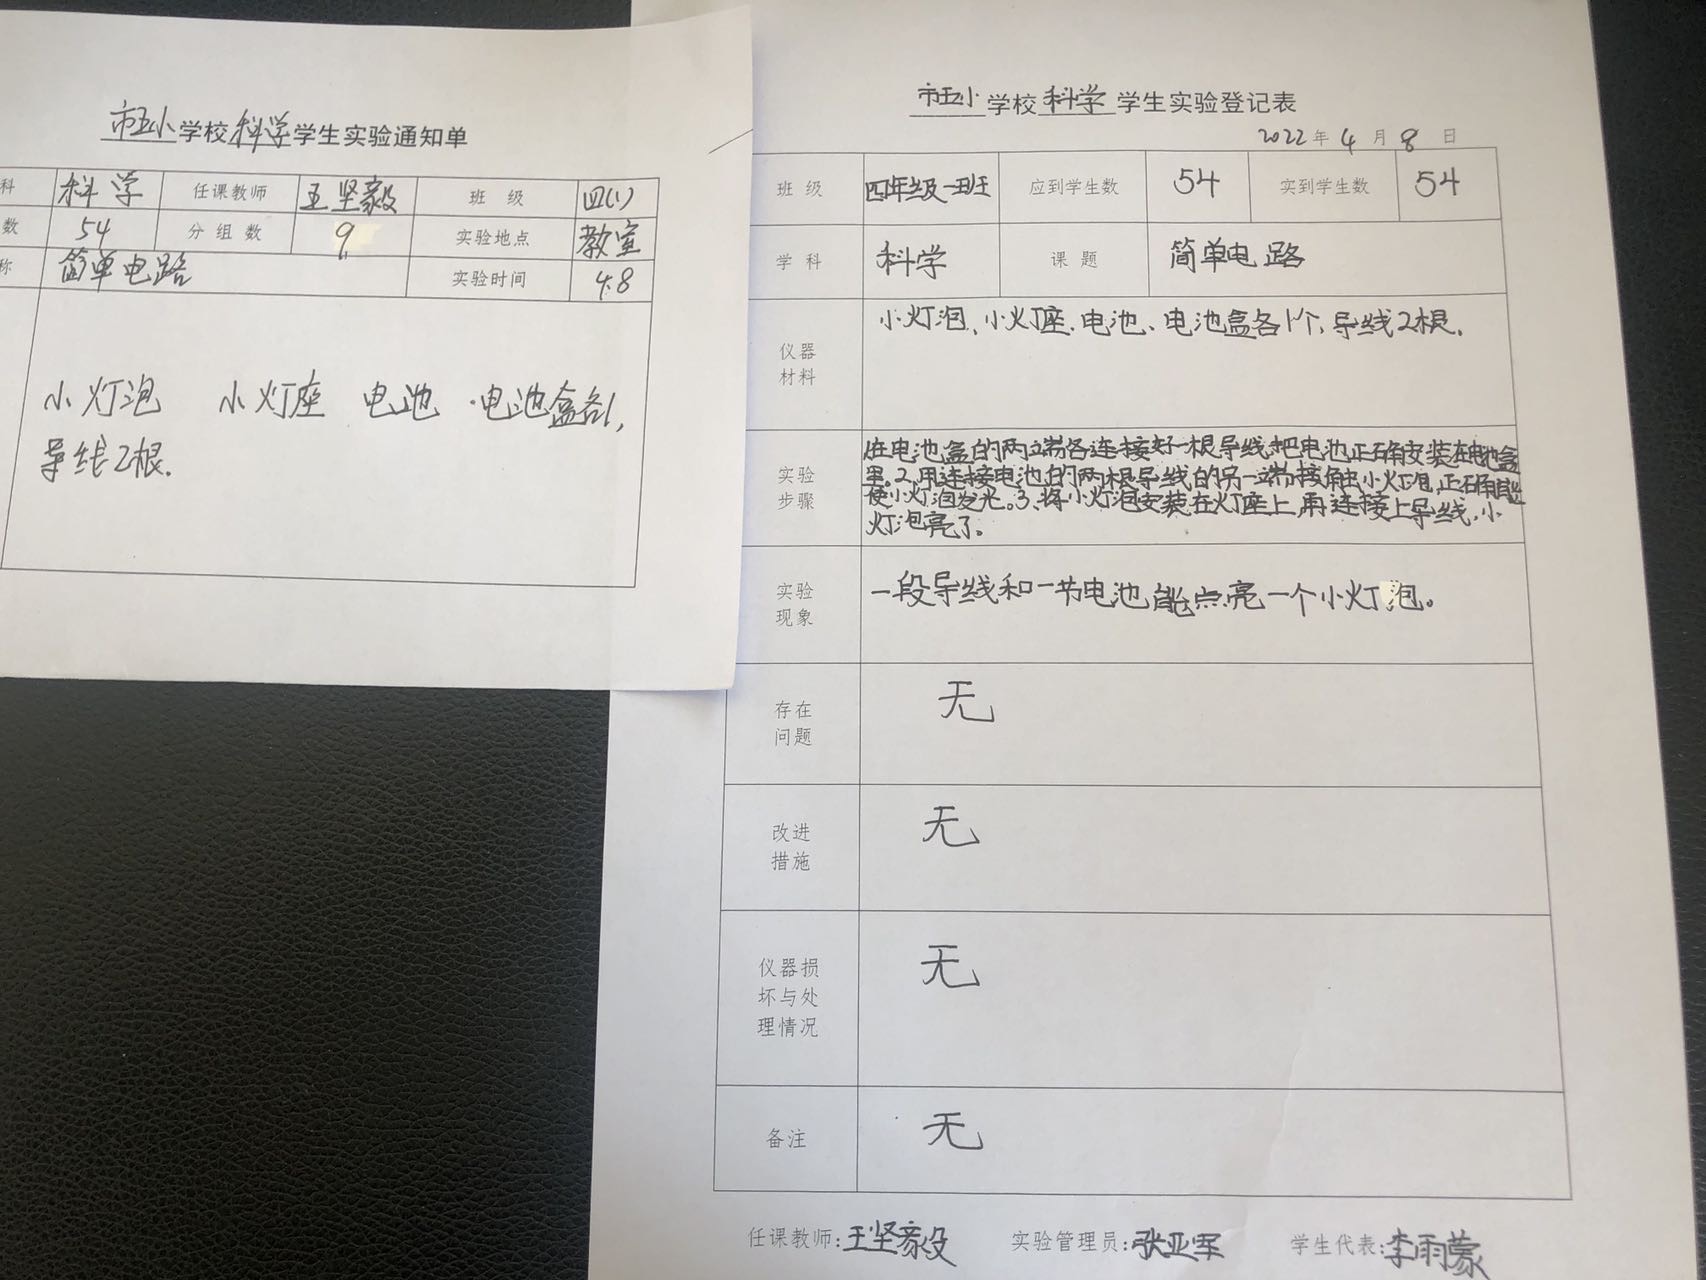 市五小学校科学学生实验通知单
科 科学 任课教师 王坚毅 班级 四(1)
数 54 分组数 9 实验地点 教室
称 简单电路 实验时间 4.8
小灯泡 小灯座 电池 电池盒各1,
导线2根.
市五小学校科学学生实验登记表
2022年4月8日
班级 四年级一班 应到学生数 54 实到学生数 54
学科 科学 课题 简单电路
仪器材料 小灯泡、小灯座、电池、电池盒各1个,导线2根.
实验步骤 在电池盒的两端各连接好一根导线,把电池正确安装在电池盒
里。2、用连接电池的两根导线的另一端接触小灯泡,正确能
使小灯泡发光。3、将小灯泡安装在灯座上,再连接上导线,小
灯泡亮了。
实验现象 一段导线和一节电池能点亮一个小灯泡。
存在问题 无
改进措施 无
仪器损坏与处理情况 无
备注 无
任课教师:王坚毅 实验管理员:张亚军 学生代表:李雨蒙